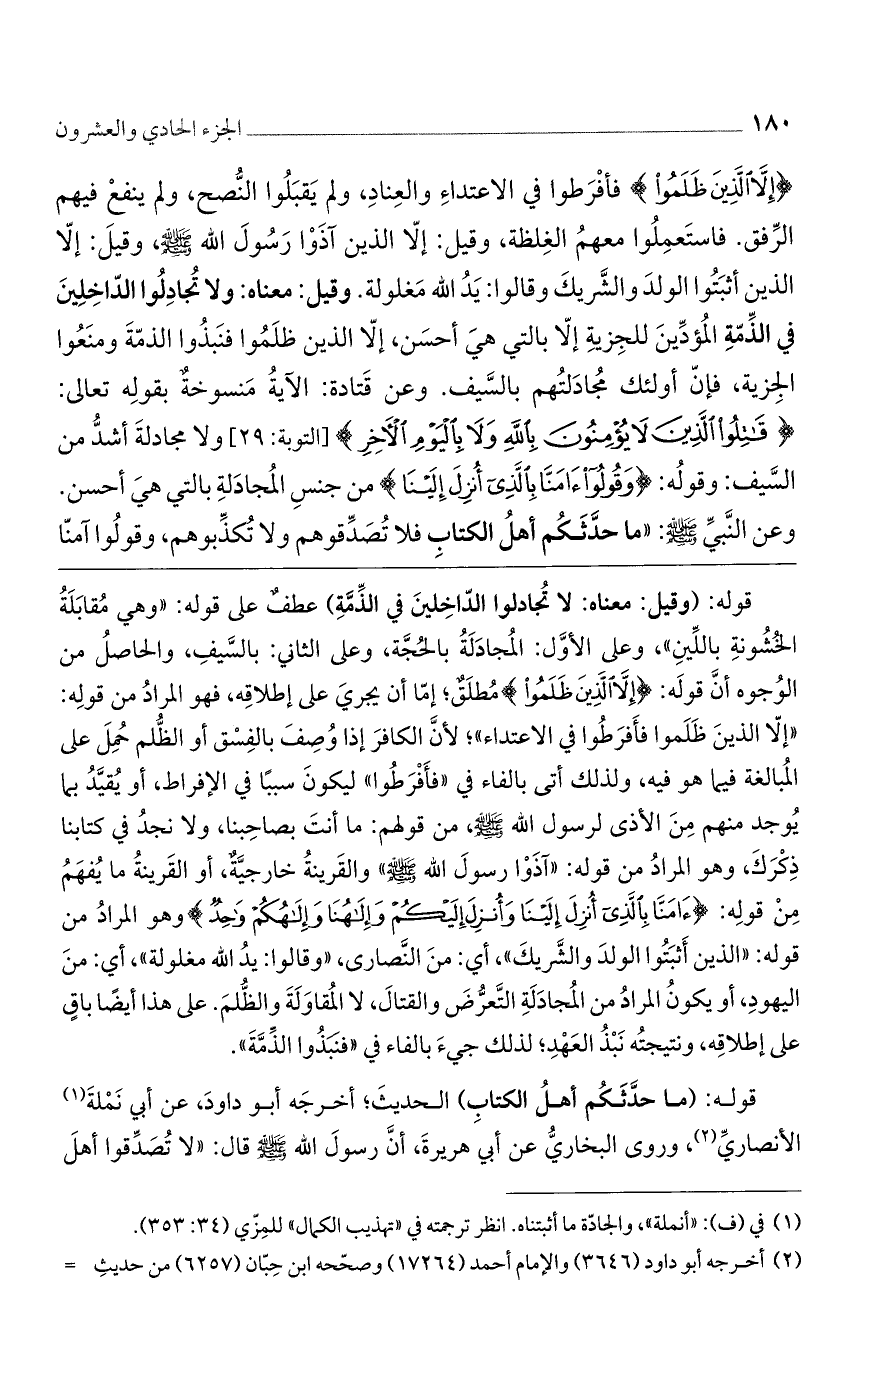 ١٨٠ الجزء الحادي والعشرون
﴿إِلَّا ٱلَّذِينَ ظَلَمُوا۟﴾ فأفْرَطوا في الاعتداءِ والعِنادِ، ولم يَقبَلُوا النُّصح، ولم ينفعْ فيهم
الرِّفق. فاستَعمِلُوا معهمُ الغِلظة، وقيل: إلّا الذين آذَوْا رَسُولَ الله ﷺ، وقيلَ: إلّا
الذين أثبَتُوا الولدَ والشَّريكَ وقالوا: يَدُ الله مَغلولة. وقيل: معناه: ولا تُجادِلُوا الدّاخِلِينَ
في الذِّمّةِ المُؤدِّينَ للجِزيةِ إلّا بالتي هيَ أحسَن، إلّا الذين ظلَمُوا فنَبذُوا الذمّةَ ومنَعُوا
الجِزية، فإنّ أولئك مُجادَلتُهم بالسَّيف. وعن قَتادة: الآيةُ مَنسوخةٌ بقولِه تعالى:
﴿قَـٰتِلُوا۟ ٱلَّذِينَ لَا يُؤْمِنُونَ بِٱللَّهِ وَلَا بِٱلْيَوْمِ ٱلْـَٔاخِرِ﴾ [التوبة: ٢٩] ولا مجادلةَ أشدُّ من
السَّيف: وقولُه: ﴿وَقُولُوٓا۟ ءَامَنَّا بِٱلَّذِىٓ أُنزِلَ إِلَيْنَا﴾ من جنسِ المُجادَلةِ بالتي هيَ أحسن.
وعن النَّبيِّ ﷺ: «ما حدَّثَكُم أهلُ الكتابِ فلا تُصَدِّقوهم ولا تُكذِّبوهم، وقولُوا آمنّا
قوله: (وقيل: معناه: لا تُجادلوا الدّاخلينَ في الذِّمَّةِ) عطفٌ على قوله: «وهي مُقابَلَةُ
الخُشُونةِ باللِّينِ»، وعلى الأوَّل: المُجادَلَةُ بالحُجَّة، وعلى الثاني: بالسَّيفِ، والحاصلُ من
الوُجوه أنَّ قولَه: ﴿إِلَّا ٱلَّذِينَ ظَلَمُوا۟﴾ مُطلَقٌ؛ إمّا أن يجريَ على إطلاقِه، فهو المرادُ من قولِه:
«إلّا الذينَ ظَلَموا فأَفرَطُوا في الاعتداء»؛ لأنَّ الكافرَ إذا وُصِفَ بالفِسْق أو الظُّلم حُمِلَ على
المُبالغة فيما هو فيه، ولذلك أتى بالفاء في «فأَفْرَطُوا» ليكونَ سببًا في الإفراط، أو يُقيَّدُ بما
يُوجد منهم مِنَ الأذى لرسول الله ﷺ، من قولهم: ما أنتَ بصاحِبنا، ولا نجدُ في كتابنا
ذِكْرَكَ، وهو المرادُ من قوله: «آذَوْا رسولَ الله ﷺ» والقَرينةُ خارجيَّةٌ، أو القَرينةُ ما يُفهَمُ
مِنْ قولِه: ﴿ءَامَنَّا بِٱلَّذِىٓ أُنزِلَ إِلَيْنَا وَأُنزِلَ إِلَيْكُمْ وَإِلَـٰهُنَا وَإِلَـٰهُكُمْ وَٰحِدٌ﴾ وهو المرادُ من
قوله: «الذين أَثبَتُوا الولدَ والشَّريكَ»، أي: منَ النَّصارى، «وقالوا: يدُ الله مغلولة»، أي: منَ
اليهودِ، أو يكونُ المرادُ من المُجادَلَةِ التَّعرُّضَ والقتالَ، لا المُقاوَلَةَ والظُّلمَ. على هذا أيضًا باقٍ
على إطلاقِه، ونتيجتُه نَبْذُ العَهْدِ؛ لذلك جيءَ بالفاء في «فنَبَذُوا الذِّمَّةَ».
قولـه: (مـا حدَّثَـكُم أهـلُ الكتابِ) الـحديثَ؛ أخـرجَه أبـو داودَ، عن أبي نَمْلةَ(١)
الأنصاريِّ(٢)، وروى البخاريُّ عن أبي هريرةَ، أنَّ رسولَ الله ﷺ قال: «لا تُصَدِّقوا أهلَ
(١) في (ف): «أنملة»، والجادّة ما أثبتناه. انظر ترجمته في «تهذيب الكمال» للمِزّي (٣٤: ٣٥٣).
(٢) أخـرجه أبو داود (٣٦٤٦) والإمام أحمد (١٧٢٦٤) وصحّحه ابن حِبّان (٦٢٥٧) من حديثِ =